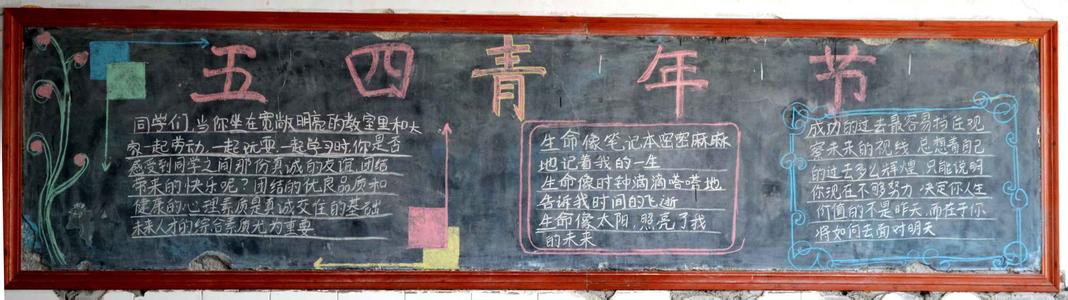 五四青年节
同学们,当你坐在宽敞明亮的教室里和大
家一起劳动,一起玩耍,一起学习时,你是否
感受到同学之间那份真诚的友谊,团结
带来的快乐呢?团结的优良品质和
健康的心理素质是真诚交往的基础
未来人才的综合素质尤为重要
生命像笔记本密密麻麻
地记着我的一生
生命像时钟滴滴嗒嗒地
告诉我时间的飞逝
生命像太阳,照亮了我
的未来
成功的过去最容易挡住观
察未来的视线,总想着自己
的过去多么辉煌,只能说明
你现在不够努力,决定你人生
价值的不是昨天,而在于你
将如何去面对明天